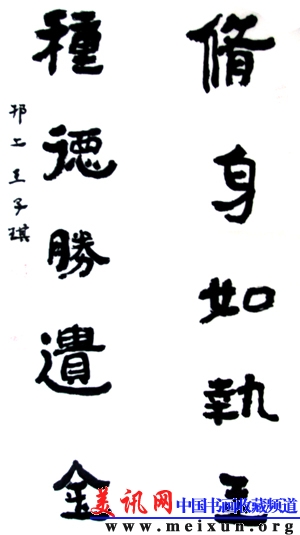 脩身如執玉
種徳勝遺金
邗上王子琪
美讯网 中国书画收藏频道
www.meixun.org